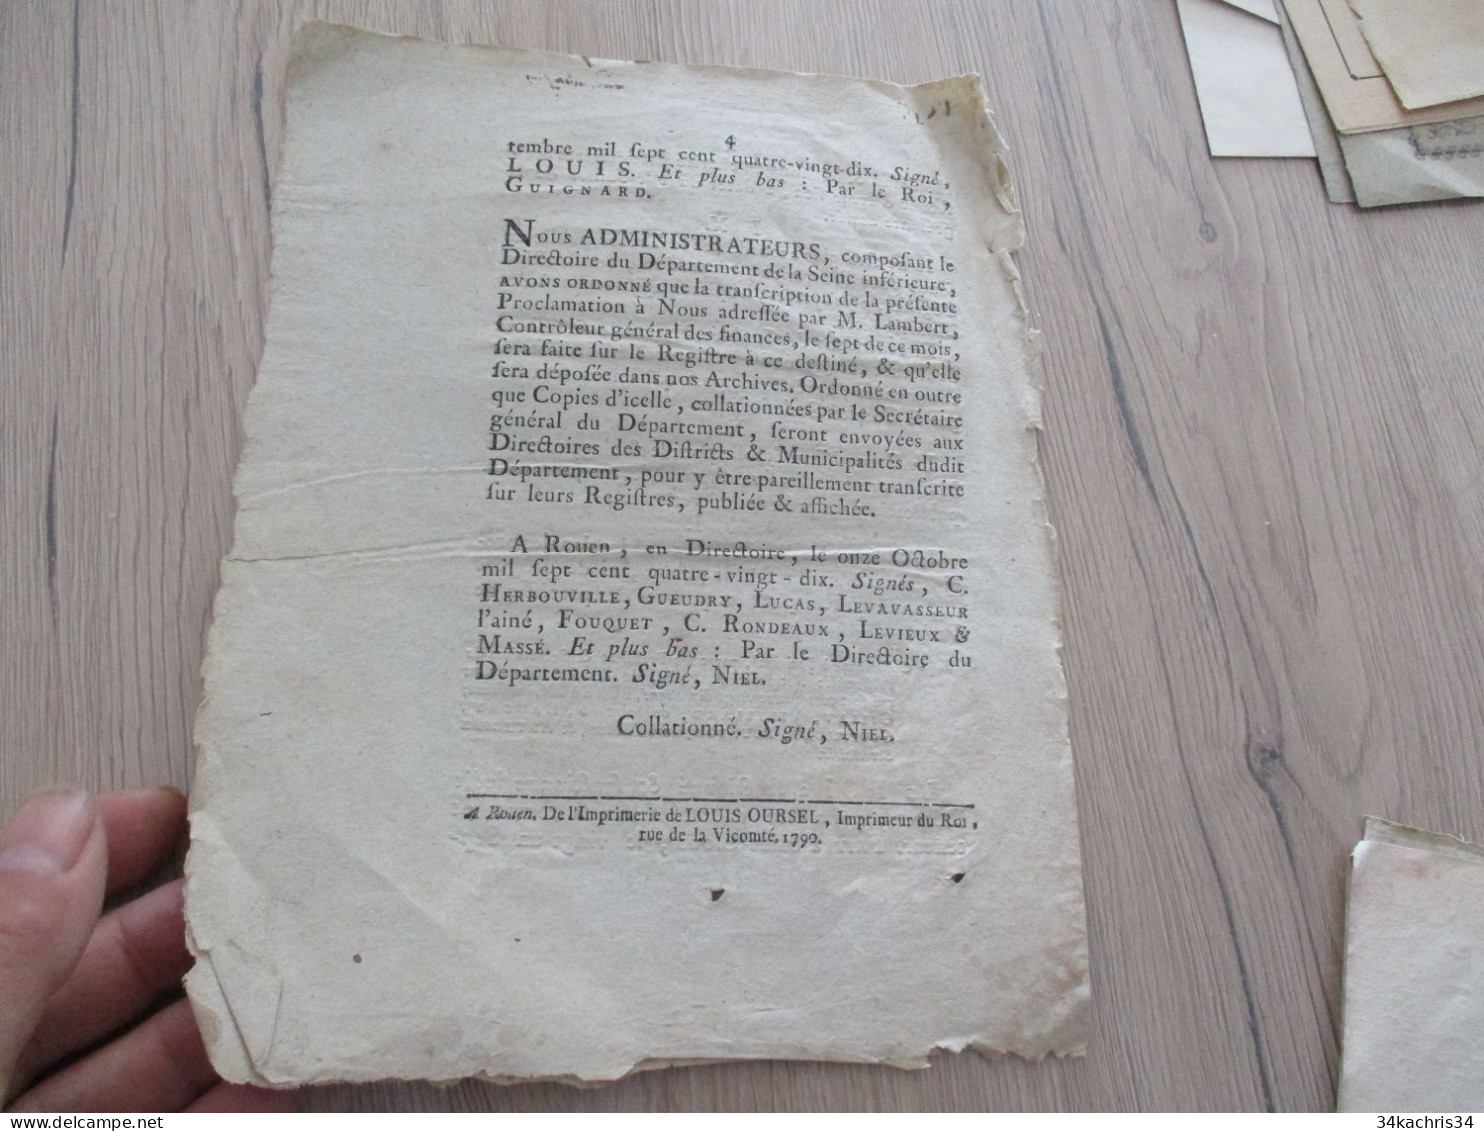 4
tembre mil ſept cent quatre-vingt-dix. Signé,
LOUIS. Et plus bas : Par le Roi,
GUIGNARD.
NOUS ADMINISTRATEURS, compoſant le
Directoire du Département de la Seine inférieure,
AVONS ORDONNÉ que la tranſcription de la préſente
Proclamation à Nous adreſſée par M. Lambert,
Contrôleur général des finances, le ſept de ce mois,
ſera faite ſur le Regiſtre à ce deſtiné, & qu'elle
ſera dépoſée dans nos Archives. Ordonné en outre
que Copies d'icelle, collationnées par le Secrétaire
général du Département, ſeront envoyées aux
Directoires des Diſtricts & Municipalités dudit
Département, pour y être pareillement tranſcrite
ſur leurs Regiſtres, publiée & affichée.
A Rouen, en Directoire, le onze Octobre
mil ſept cent quatre-vingt-dix. Signés, C.
HERBOUVILLE, GUEUDRY, LUCAS, LEVAVASSEUR
l'ainé, FOUQUET, C. RONDEAUX, LEVIEUX &
MASSÉ. Et plus bas : Par le Directoire du
Département. Signé, NIEL.
Collationné. Signé, NIEL.
A Rouen. De l'Imprimerie de LOUIS OURSEL, Imprimeur du Roi,
rue de la Vicomté. 1790.
34kachris34